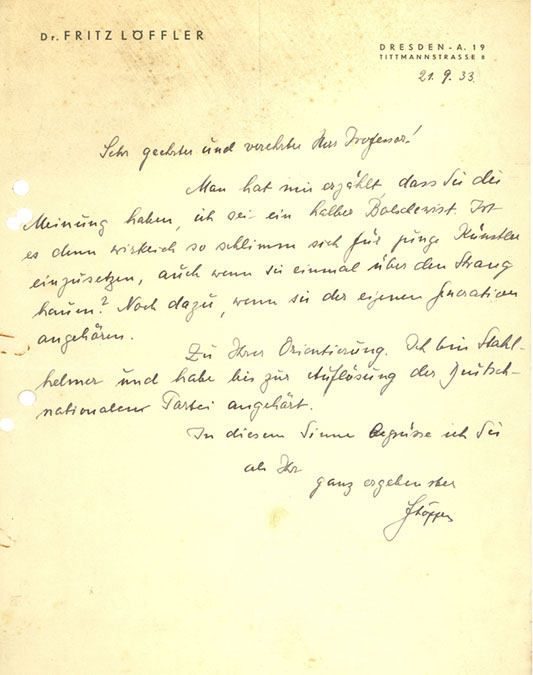 Dr. FRITZ LÖFFLER
DRESDEN-A. 19
TITTMANNSTRASSE 8
21. 9. 33.
Sehr geehrter und verehrter Herr Professor!
Man hat mir erzählt, dass Sie die
Meinung haben, ich sei ein halber Bolschewist. Ist
es denn wirklich so schlimm sich für junge Künstler
einzusetzen, auch wenn sie einmal über den Strang
hauen? Noch dazu, wenn sie der eigenen Generation
angehören.
Zu Ihrer Orientierung. Ich bin Stahl-
helmer und habe bis zur Auflösung der Deutsch-
nationalen Partei angehört.
In diesem Sinne begrüsse ich Sie
als Ihr
ganz ergebenster
FLöffler